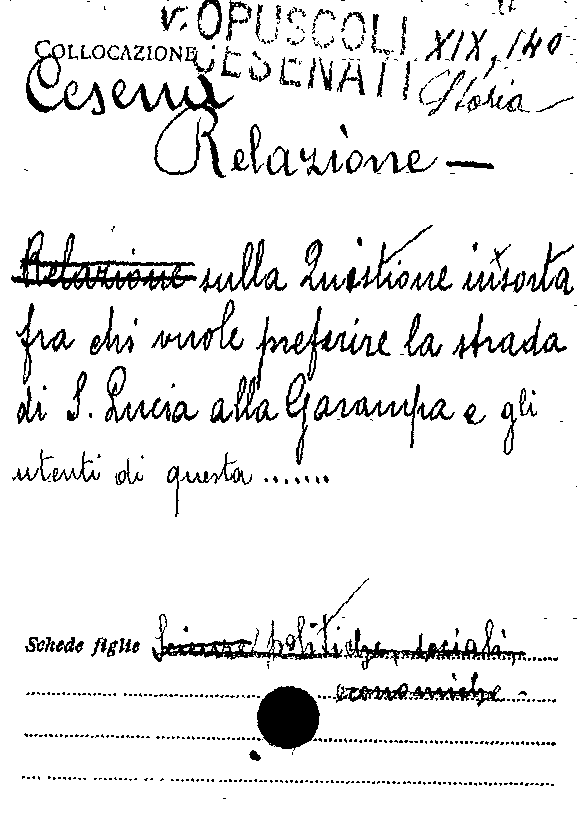 V. OPUSCOLI XIX, 140
COLLOCAZIONE CESENATI Storia
Cesena
Relazione —
Relazione sulla Quistione insorta
fra chi vuole preferire la strada
di S. Lucia alla Garampa e gli
utenti di questa .......
Schede figlie Scienze politiche, sociali,
economiche -